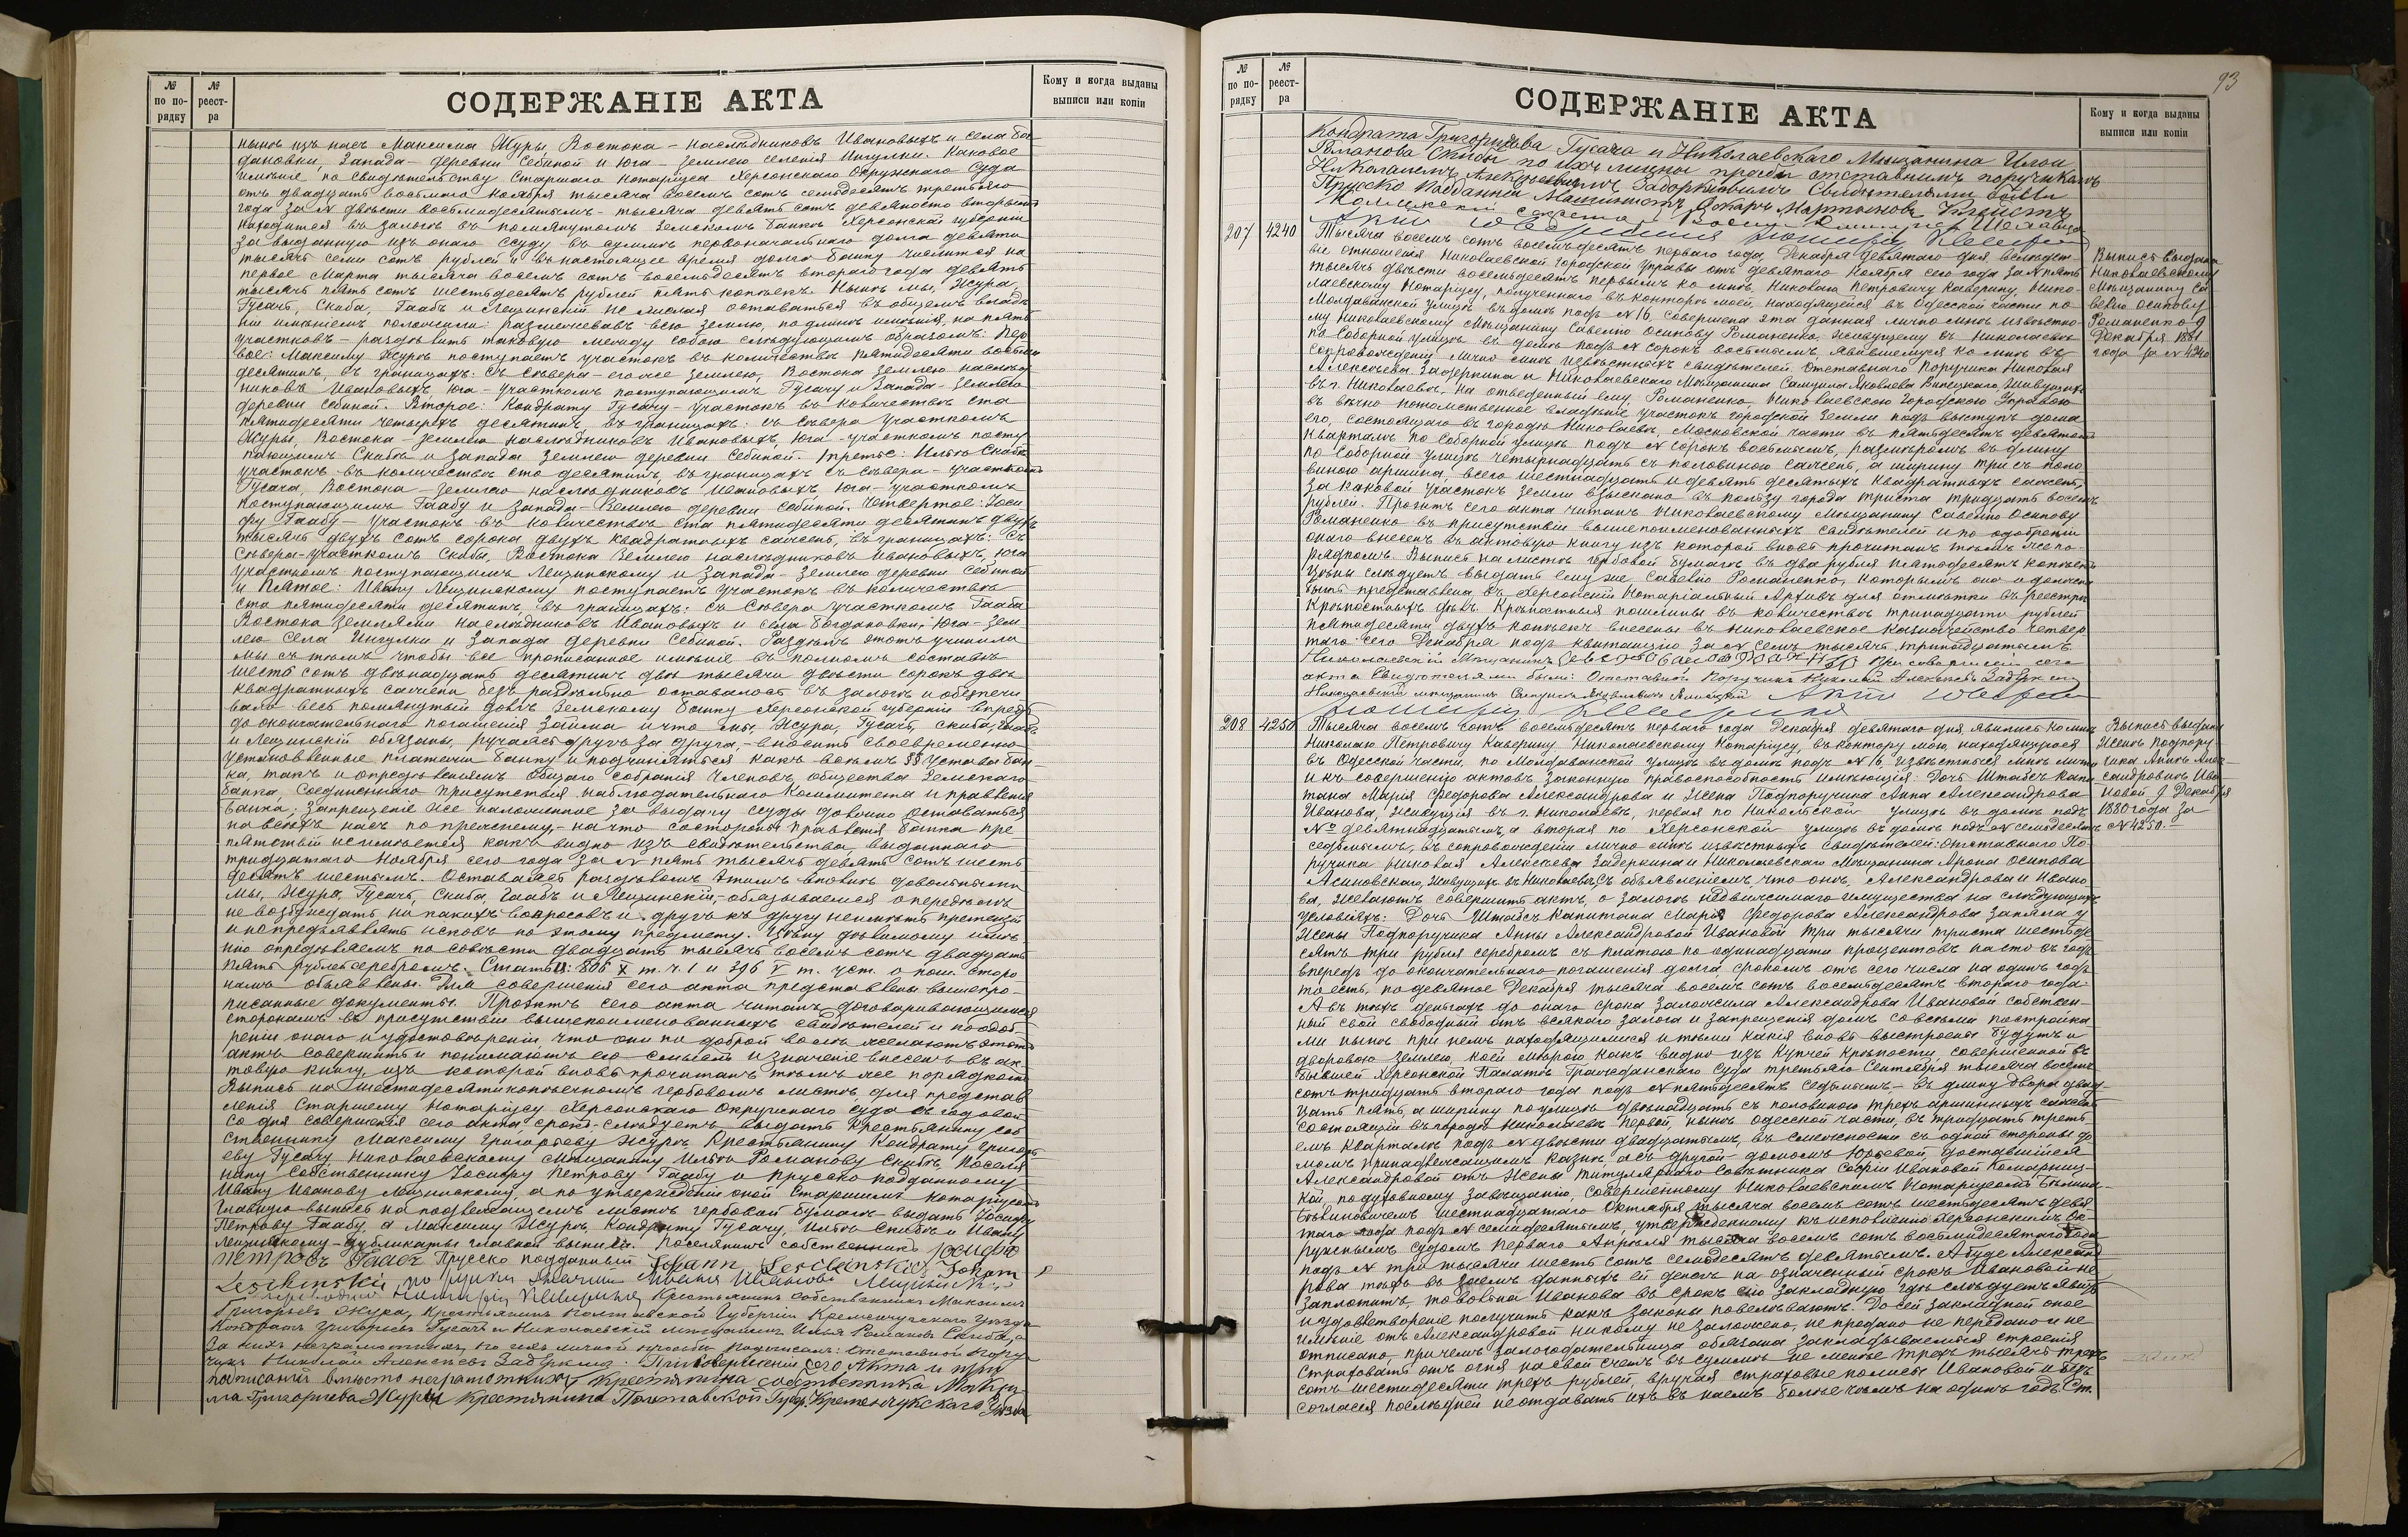 № по по-рядку
№ реест-ра
СОДЕРЖАНІЕ АКТА
Кому и когда выданы выписи или копіи
нынѣ изъ насъ Максима Журы, Востока – наслѣдниковъ Ивановыхъ и села Бог
дановки, Запада – деревни Себиной и Юга – землею селенія Ингулки. Каковое
имѣніе, по свидѣтельству Старшаго Нотаріуса Херсонскаго Окружнаго Суда
отъ двадцать восьмаго Ноября тысяча восемь сотъ семьдесятъ третьяго
года за № двѣсти восьмидесятымъ – тысяча девять сотъ девяносто вторымъ
находится въ залогѣ въ помянутомъ Земскомъ Банкѣ Херсонской губерніи
за выданную изъ онаго ссуду въ суммѣ первоначальнаго долга девяти
тысячъ семи сотъ рублей и въ настоящее время долга банку числится на
первое Марта тысяча восемь сотъ восемьдесятъ втораго года девять
тысячъ пять сотъ шестьдесятъ рублей пять копѣекъ. Нынѣ мы, Жура,
Гусачъ, Скиба, Гаабъ и Лещинскій не желая оставаться въ общемъ владѣ
ніи имѣніемъ положили: размежевавъ всю землю, по длинѣ имѣнія, на пять
участковъ – раздѣлить таковую между собою слѣдующимъ образомъ: Пер
вое: Максиму Журѣ поступаетъ участокъ въ количествѣ пятидесяти восьми
десятинъ, въ границахъ: съ Сѣвера – его же землею, Востока землею наслѣд
никовъ Ивановыхъ, Юга – участкомъ поступающимъ Гусачу и Запада – землею
деревни Себиной. Второе: Кондрату Гусачу – участокъ въ количествѣ ста
пятидесяти четырехъ десятинъ, въ границахъ: съ Сѣвера участкомъ
Журы, Востока – землею наслѣдниковъ Ивановыхъ, Юга – участкомъ посту
пающимъ Скибѣ и Запада землею деревни Себиной. Третье: Ильѣ Скибѣ
участокъ въ количествѣ сто десятинъ, въ границахъ съ Сѣвера – участкомъ
Гусача, Востока – землею наслѣдниковъ Ивановыхъ, Юга – участкомъ
поступающимъ Гаабу и Запада – землею деревни Себиной. Четвертое: Іоси
фу Гаабу – участокъ въ количествѣ ста пятидесяти десятинъ двухъ
тысячъ двухъ сотъ сорока двухъ квадратныхъ саженъ, въ границахъ: съ
Сѣвера – участкомъ Скибы, Востока землею наслѣдниковъ Ивановыхъ, Юга
участкомъ поступающимъ Лещинскому и Запада – землею деревни Себиной
и Пятое: Ивану Лещинскому поступаетъ участокъ въ количествѣ
ста пятидесяти десятинъ, въ границахъ: съ Сѣвера участкомъ Гааба
Востока землями наслѣдниковъ Ивановыхъ и села Богдановки, Юга – зем
лею села Ингулки и Запада деревни Себиной. Раздѣлъ этотъ учинили
мы съ тѣмъ чтобы все прописанное имѣніе въ полномъ составѣ
шесть сотъ двѣнадцать десятинъ двѣ тысячи двѣсти сорокъ двѣ
квадратныхъ сажени безъ раздѣльно оставалось въ залогѣ и обезпечи
вало весь помянутый долгъ Земскому банку Херсонской губерніи впредь
до окончательнаго погашенія займа и что мы, Жура, Гусачъ, Скиба, Гаабъ
и Лещинскій обязаны, ручаясь другъ за друга, – вносить своевременно
установленные платежи банку и подчиняться какъ всѣмъ §§ Устава бан
ка, такъ и опредѣленіямъ Общаго собранія членовъ общества Земскаго
банка, Соединеннаго присутствія наблюдательнаго комитета и правленія
банка; запрещеніе же наложенное за выдачу ссуды должно оставаться
на всѣхъ насъ по прежнему, – на что со стороны Правленія банка пре
пятствій не имѣется какъ видно изъ свидѣтельства, выданнаго
тридцатаго Ноября сего года за № пять тысячъ девять сотъ шесть
десятъ шестымъ. Оставаясь раздѣломъ этимъ вполнѣ довольными
мы, Жура, Гусачъ, Скиба, Гаабъ и Лещинскій, – обязываемся о передѣлѣ
не возбуждать ни какихъ вопросовъ и другъ къ другу не имѣть претензій
и не предъявлять исковъ по этому предмету. Цѣну дѣлимому имѣ
нію опредѣляемъ по совѣсти двадцать тысячъ восемь сотъ двадцать
пять рублей серебромъ. Статьи: 806 X т. ч. 1 и 396 V т. уст. о пош. сторо
намъ объявлены. Для совершенія сего акта представлены вышепро
писанные документы. Проэктъ сего акта читанъ договаривающимся
сторонамъ въ присутствіи вышепоименованныхъ свидѣтелей и по одоб
реніи онаго и удостовѣреніи, что они по доброй волѣ желаютъ этотъ
актъ совершить и понимаютъ его смыслъ и значеніе внесенъ въ ак
товую книгу, изъ которой вновь прочитанъ тѣмъ же порядкомъ
Выпись на шестидесятикопѣечномъ гербовомъ листѣ, для представ
ленія Старшему Нотаріусу Херсонскаго Окружнаго Суда въ годовой
со дня совершенія сего акта срокъ – слѣдуетъ выдать Крестьянину соб
ственнику Максиму Григорьеву Журѣ, Крестьянину Кондрату Григорь
еву Гусачу, Николаевскому мѣщанину Ильѣ Романову Скибѣ, поселя
нину собственнику Іосифу Петрову Гаабу и Прусско подданному
Ивану Иванову Лещинскому, а по утвержденіи оной Старшимъ Нотаріусомъ
Главную выпись на подлежащемъ листѣ гербовой бумаги – выдать Іосифу
Петрову Гаабу, а Максиму Журѣ, Кондрату Гусачу, Ильѣ Скибѣ и Ивану
Лещинскому – дубликаты главной выписи. Поселянинъ собственникъ Іосифъ
Петровъ Гаабъ Прусско подданный Johann Leschinski Johann
Leschinski
Крестьянинъ собственникъ Максимъ
Григорьевъ Жура, Крестьянинъ Полтавской Губерніи Кременчугскаго уѣзда
Кондратъ Григорьевъ Гусачъ и Николаевскій мѣщанинъ Илья Романовъ Скиба, а
за нихъ неграмотныхъ, по ихъ личной просьбѣ подписалъ: отставной Пору
чикъ Николай Алексѣевъ Задеркинъ. При совершеніи сего Акта и при
подписаніи вмѣсто неграмотныхъ Крестьянина собственника Макси
ма Григорьева Журы Крестьянина Полтавской Губер. Кременчукскаго Уѣзда
93
№ по по-рядку
№ реест-ра
СОДЕРЖАНІЕ АКТА
Кому и когда выданы выписи или копіи
Кондрата Григорьева Гусача и Николаевскаго Мѣщанина Ильи
Романова Скибы по ихъ личной просьбѣ отставнымъ поручикомъ
Николаемъ Алексѣевымъ Задеркинымъ Свидѣтелями были
207 4240 Тысяча восемь сотъ восемьдесятъ перваго года, Декабря девятаго дня, вслѣдст-
віе отношенія Николаевской городской Управы отъ девятаго Ноября сего года за № пять
тысячъ двѣсти восемьдесятъ первымъ ко мнѣ, Николаю Петровичу Каверину, Нико-
лаевскому Нотаріусу, полученнаго въ конторѣ моей, находящейся въ Одесской части по
Молдаванской улицѣ въ домѣ подъ № 16, совершена эта данная лично мнѣ извѣстно-
му Николаевскому мѣщанину Савелію Осипову Романенко, живущему въ Николаевѣ
по Соборной улицѣ въ домѣ подъ № сорокъ восьмымъ, явившемуся ко мнѣ въ
сопровожденіи лично мнѣ извѣстныхъ свидѣтелей: отставнаго Поручика Николая
Алексѣева Задеркина и Николаевскаго Мѣщанина Самуила Яковлева Липецкаго, живущихъ
въ г. Николаевѣ, на отведенный ему, Романенко, Николаевскою Городскою Управою
въ вѣчно потомственное владѣніе участокъ городской земли подъ выступъ дома
его, состоящаго въ городѣ Николаевѣ, Московской части въ пятьдесятъ девятомъ
кварталѣ по Соборной улицѣ подъ № сорокъ восьмымъ, размѣромъ въ длину
по Соборной улицѣ четырнадцать съ половиною саженъ, а ширину три съ поло
виною аршина, всего шестнадцать и девять десятыхъ квадратныхъ саженъ,
за каковой участокъ земли взыскано въ пользу города триста тридцать восемь
рублей. Проэктъ сего акта читанъ Николаевскому Мѣщанину Савелію Осипову
Романенко въ присутствіи вышепоименованныхъ свидѣтелей и по одобреніи
онаго внесенъ въ актовую книгу изъ которой вновь прочитанъ тѣмъ же по-
рядкомъ. Выпись на листѣ гербовой бумаги въ два рубля пятьдесятъ копѣекъ
цѣны слѣдуетъ выдать ему же Савелію Романенко, которымъ она и должна
быть представлена въ Херсонскій Нотаріальный Архивъ для отмѣтки въ реестрѣ
крѣпостныхъ дѣлъ. Крѣпостныя пошлины въ количествѣ тринадцати рублей
пятидесяти двухъ копѣекъ внесены въ Николаевское Казначейство четвер
таго сего Декабря подъ квитанцію за № семь тысячъ тринадцатымъ
Николаевскій Мѣщанинъ При совершеніи сего
акта свидѣтелями были: Отставной Поручикъ Николай Алексѣевъ Задеркинъ
Николаевскій мѣщанинъ Самуилъ Яковлевичъ Липецкій
Выпись выдана
Николаевскому
Мѣщанину Са
велію Осипову
Романенко 9
Декабря 1881
года за № 4240
208 4250 Тысяча восемь сотъ восемьдесятъ перваго года Декабря девятаго дня, явились ко мнѣ
Николаю Петровичу Каверину, Николаевскому Нотаріусу, въ контору мою, находящуюся
въ Одесской части, по Молдаванской улицѣ въ домѣ подъ № 16, извѣстныя мнѣ лично
и къ совершенію актовъ законную правоспособность имѣющія: Дочь Штабсъ Капи
тана Марія Федорова Александрова и Жена Подпоручика Анна Александрова
Иванова, живущія въ г. Николаевѣ, первая по Никольской улицѣ въ домѣ подъ
№ девятнадцатымъ, а вторая по Херсонской улицѣ въ домѣ подъ № семьдесятъ
седьмымъ, въ сопровожденіи лично мнѣ извѣстныхъ свидѣтелей: отставнаго По-
ручика Николая Алексѣева Задеркина и Николаевскаго Мѣщанина Арона Осипова
Асиновскаго, живущихъ въ Николаевѣ, съ объявленіемъ, что онѣ, Александрова и Ивано
ва, желаютъ совершить актъ о залогѣ недвижимаго имущества на слѣдующихъ
условіяхъ: Дочь Штабсъ Капитана Марія Федорова Александрова заняла у
Жены Подпоручика Анны Александровой Ивановой три тысячи триста шестьде
сятъ три рубля серебромъ съ платою по одинадцати процентовъ на сто въ годъ
впередъ до окончательнаго погашенія долга, срокомъ отъ сего числа на одинъ годъ
то есть, по девятое Декабря тысяча восемь сотъ восемьдесятъ втораго года
А въ тѣхъ деньгахъ до онаго срока заложила Александрова Ивановой собствен-
ный свой свободный отъ всякаго залога и запрещенія домъ со всѣми постройка
ми нынѣ при немъ находящимися и тѣми какія вновь выстроены будутъ и
дворовою землею, коей мѣрою какъ видно изъ Купчей Крѣпости, совершенной въ
бывшей Херсонской Палатѣ Гражданскаго Суда третьяго Сентября тысяча восемь
сотъ тридцать втораго года подъ № пятьдесятъ седьмымъ – въ длину двора двад
цать пять, а ширину по улицѣ двѣнадцать съ половиною трехъ аршинныхъ саженъ
состоящій въ городѣ Николаевѣ первой, нынѣ Одесской части, въ тридцать треть
емъ кварталѣ подъ № двѣсти двадцатымъ, въ смежности съ одной стороны до
момъ принадлежащимъ казнѣ, а съ другой – домомъ Юрьевой, доставшійся
Александровой отъ Жены Титулярнаго Совѣтника Софіи Ивановой Комарниц-
кой, по духовному завѣщанію, совершенному Николаевскимъ Нотаріусомъ
шестнадцатаго Октября тысяча восемь сотъ шестьдесятъ девя
таго года подъ № семидесятымъ, утвержденному къ исполненію Херсонскимъ Ок-
ружнымъ Судомъ перваго Апрѣля тысяча восемь сотъ восьмидесятаго года
подъ № три тысячи шесть сотъ семьдесятъ девятымъ. А буде Александ
рова тѣхъ въ заемъ данныхъ ей денегъ на означенный срокъ Ивановой не
заплотитъ, то вольна Иванова въ срокъ сію закладную гдѣ слѣдуетъ явить
и удовлетвореніе получить какъ законы повелѣваютъ. До сей закладной оное
имѣніе отъ Александровой никому не заложено, не продано не передано и не
отписано, причемъ залогодательница обязана закладываемыя строенія
страховать отъ огня на свой счетъ въ суммѣ не менѣе трехъ тысячъ трехъ
сотъ шестидесяти трехъ рублей, вручая страховые полисы Ивановой и безъ
согласія послѣдней не отдавать ихъ въ наемъ болѣе чѣмъ на одинъ годъ. Ст.
Выпись выдана
Женѣ Подпору-
чика Аннѣ Алек-
сандровнѣ Ива-
новой 9 Декабря
1880 года за
№ 4250.–